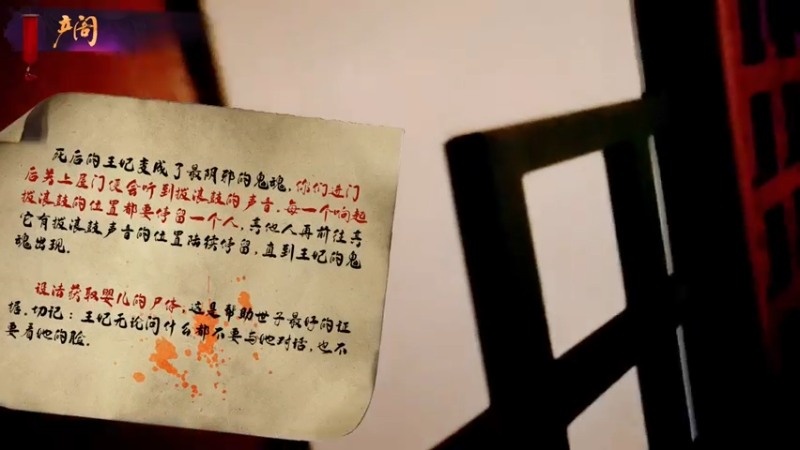 产阁
死后的王妃变成了最阴邪的鬼魂，你们进门
后关上屋门便会听到拨浪鼓的声音。每一个响起
拨浪鼓的位置都要停留一个人，其他人再前往其
它有拨浪鼓声音的位置陆续停留，直到王妃的鬼
魂出现。
设法获取婴儿的尸体，这是帮助世子最好的证
据。切记：王妃无论问什么都不要与她对话，也不
要看她的脸。